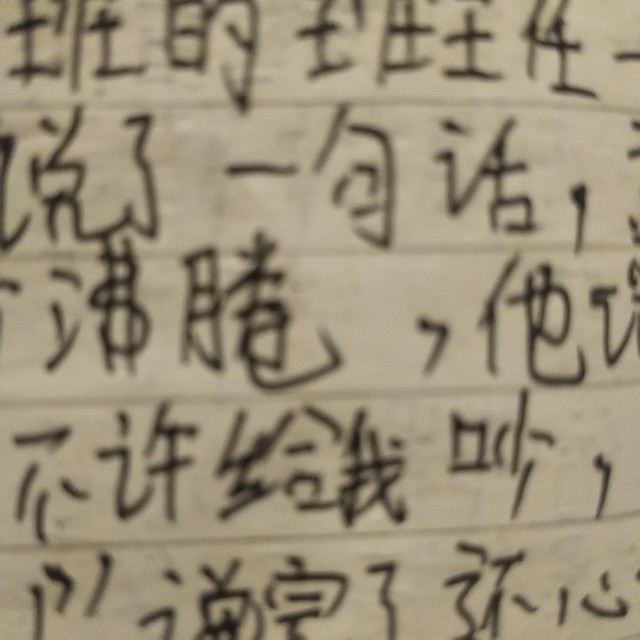 班的班主任
说了一句话,
沸腾,他说
不许给我吵,
说完了还心